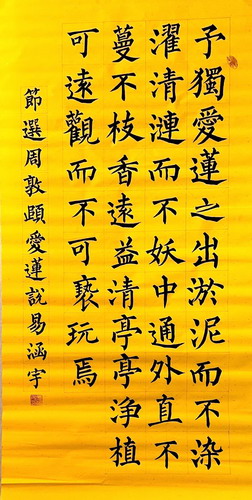 予獨愛蓮之出淤泥而不染
濯清漣而不妖中通外直不
蔓不枝香遠益清亭亭淨植
可遠觀而不可褻玩焉
節選周敦頤愛蓮說易涵宇